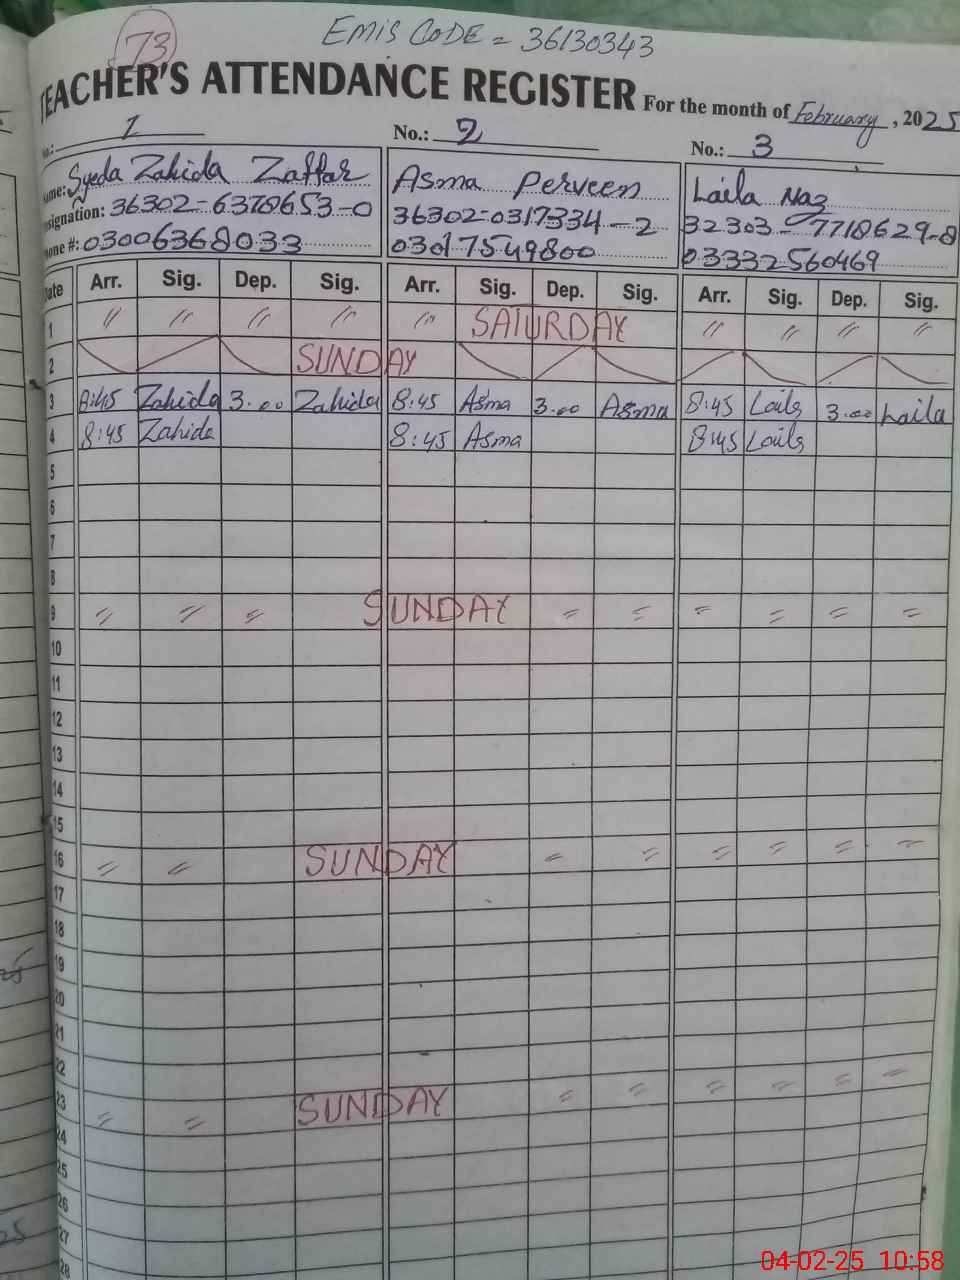 73
EMIS CODE = 36130343
TEACHER'S ATTENDANCE REGISTER For the month of February, 2025
No.: 1 No.: 2 No.: 3
Name: Syeda Zahida Zaffar Asma Perveen Laila Naz
Designation: 36302-6378653-0 36302-0317334-2 32303-7718629-8
Phone #: 03006368033 03017549800 03332560469
Date Arr. Sig. Dep. Sig. Arr. Sig. Dep. Sig. Arr. Sig. Dep. Sig.
1 〃 〃 〃 〃 〃 SATURDAY 〃 〃 〃 〃
2 SUNDAY
3 8:45 Zahida 3.00 Zahida 8:45 Asma 3.00 Asma 8:45 Laila 3.00 Laila
4 8:45 Zahida 8:45 Asma 8:45 Laila
5
6
7
8
9 〃 〃 〃 SUNDAY 〃 〃 〃 〃 〃 〃
10
11
12
13
14
15
16 〃 〃 SUNDAY 〃 〃 〃 〃 〃 〃
17
18
19
20
21
22
23 〃 〃 SUNDAY 〃 〃 〃 〃 〃 〃
24
25
26
27
28
04-02-25 10:58